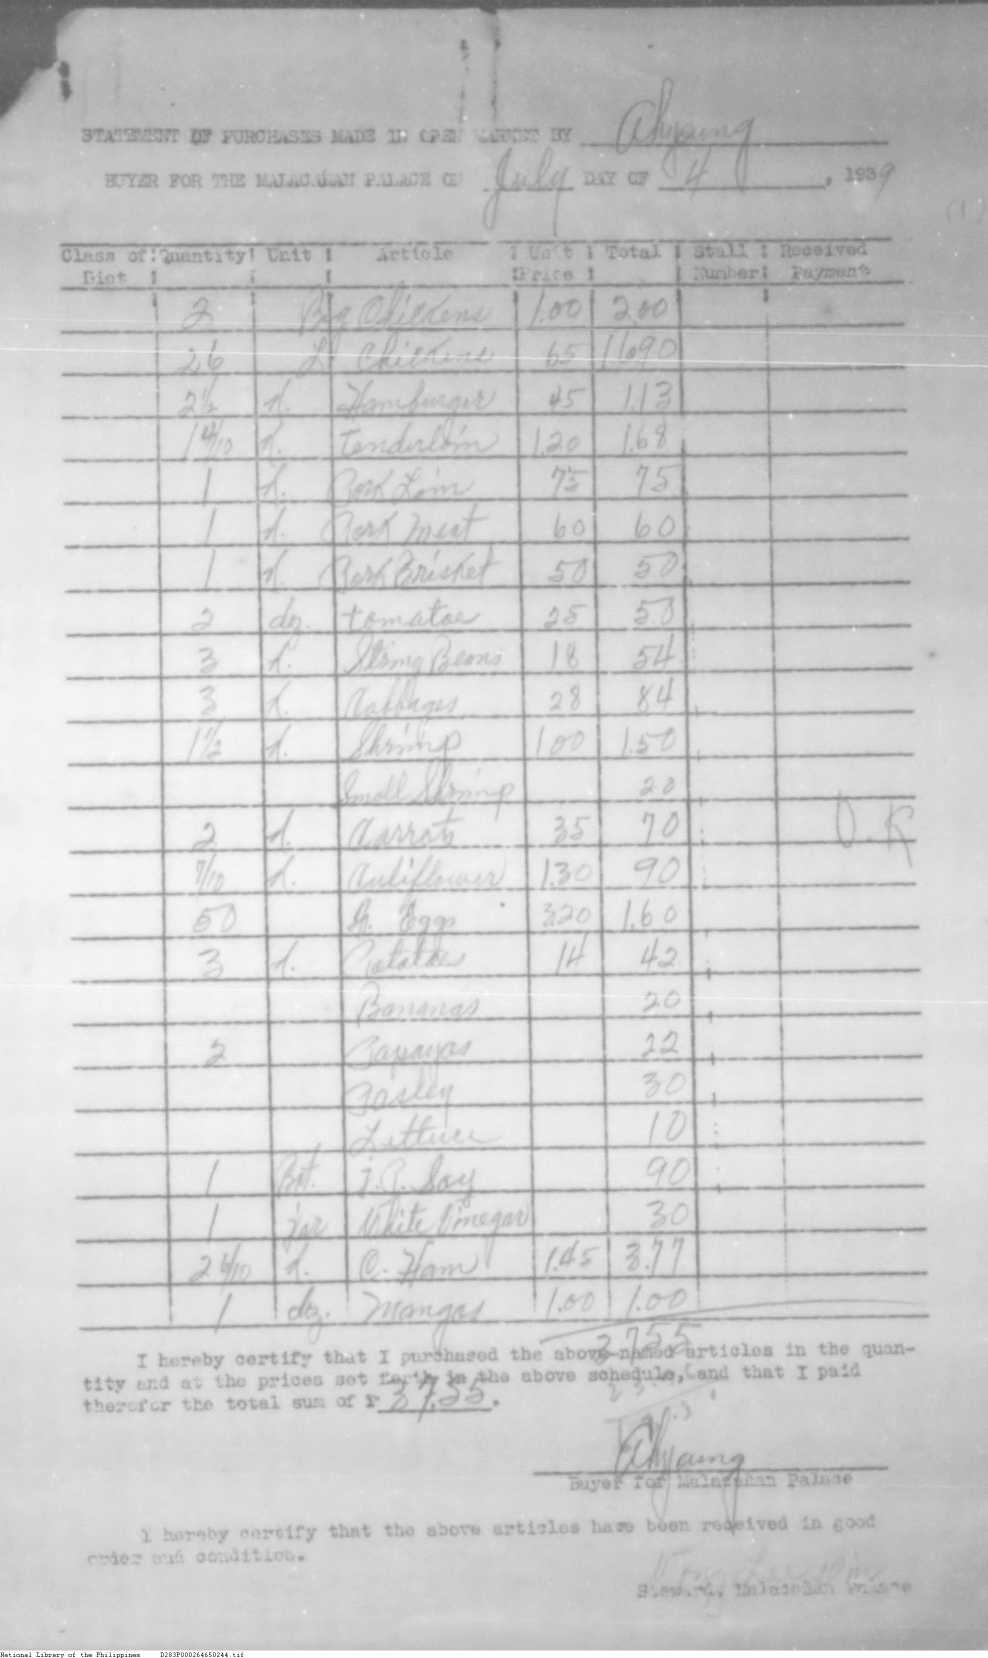 STATEMENT OF PURCHASES MADE IN OPEN MARKET BY Ahyaung
BUYER FOR THE MALACAÑAN PALACE ON July DAY OF 4, 1939
(1)
Class of Diet Quantity Unit Article Unit Price Total Stall Number Received Payment
2 Big Chickens 1.00 2.00
26 L. Chickens 65 16.90
2 1/2 k. Hamburger 45 1.13
1 4/10 k. tenderloin 1.20 1.68
1 k. Pork Loin 75 75
1 k. Pork Meat 60 60
1 k. Pork Brisket 50 50
2 dz. tomatoe 25 50
3 k. String Beans 18 54
3 k. Cabbages 28 84
1 1/2 k. Shrimp 1.00 1.50
Small Shrimp 20
2 k. Carrots 35 70
O.K
7/10 k. Cauliflower 1.30 90
50 Eggs 3.20 1.60
3 k. Potatoe 14 42
Bananas 20
2 Papayas 22
Pasley 30
Lettuce 10
1 Bot. Soy 90
1 jar White Vinegar 30
2 6/10 k. C. Ham 1.45 3.77
1 dz. Mangos 1.00 1.00
37.55
I hereby certify that I purchased the above-named articles in the quan-
tity and at the prices set forth in the above schedule, and that I paid
therefor the total sum of ₱ 37.55.
Ahyaung
Buyer for Malacañan Palace
I hereby certify that the above articles have been received in good
order and condition.
Steward, Malacañan Palace
National Library of the Philippines D283P000264650244.tif